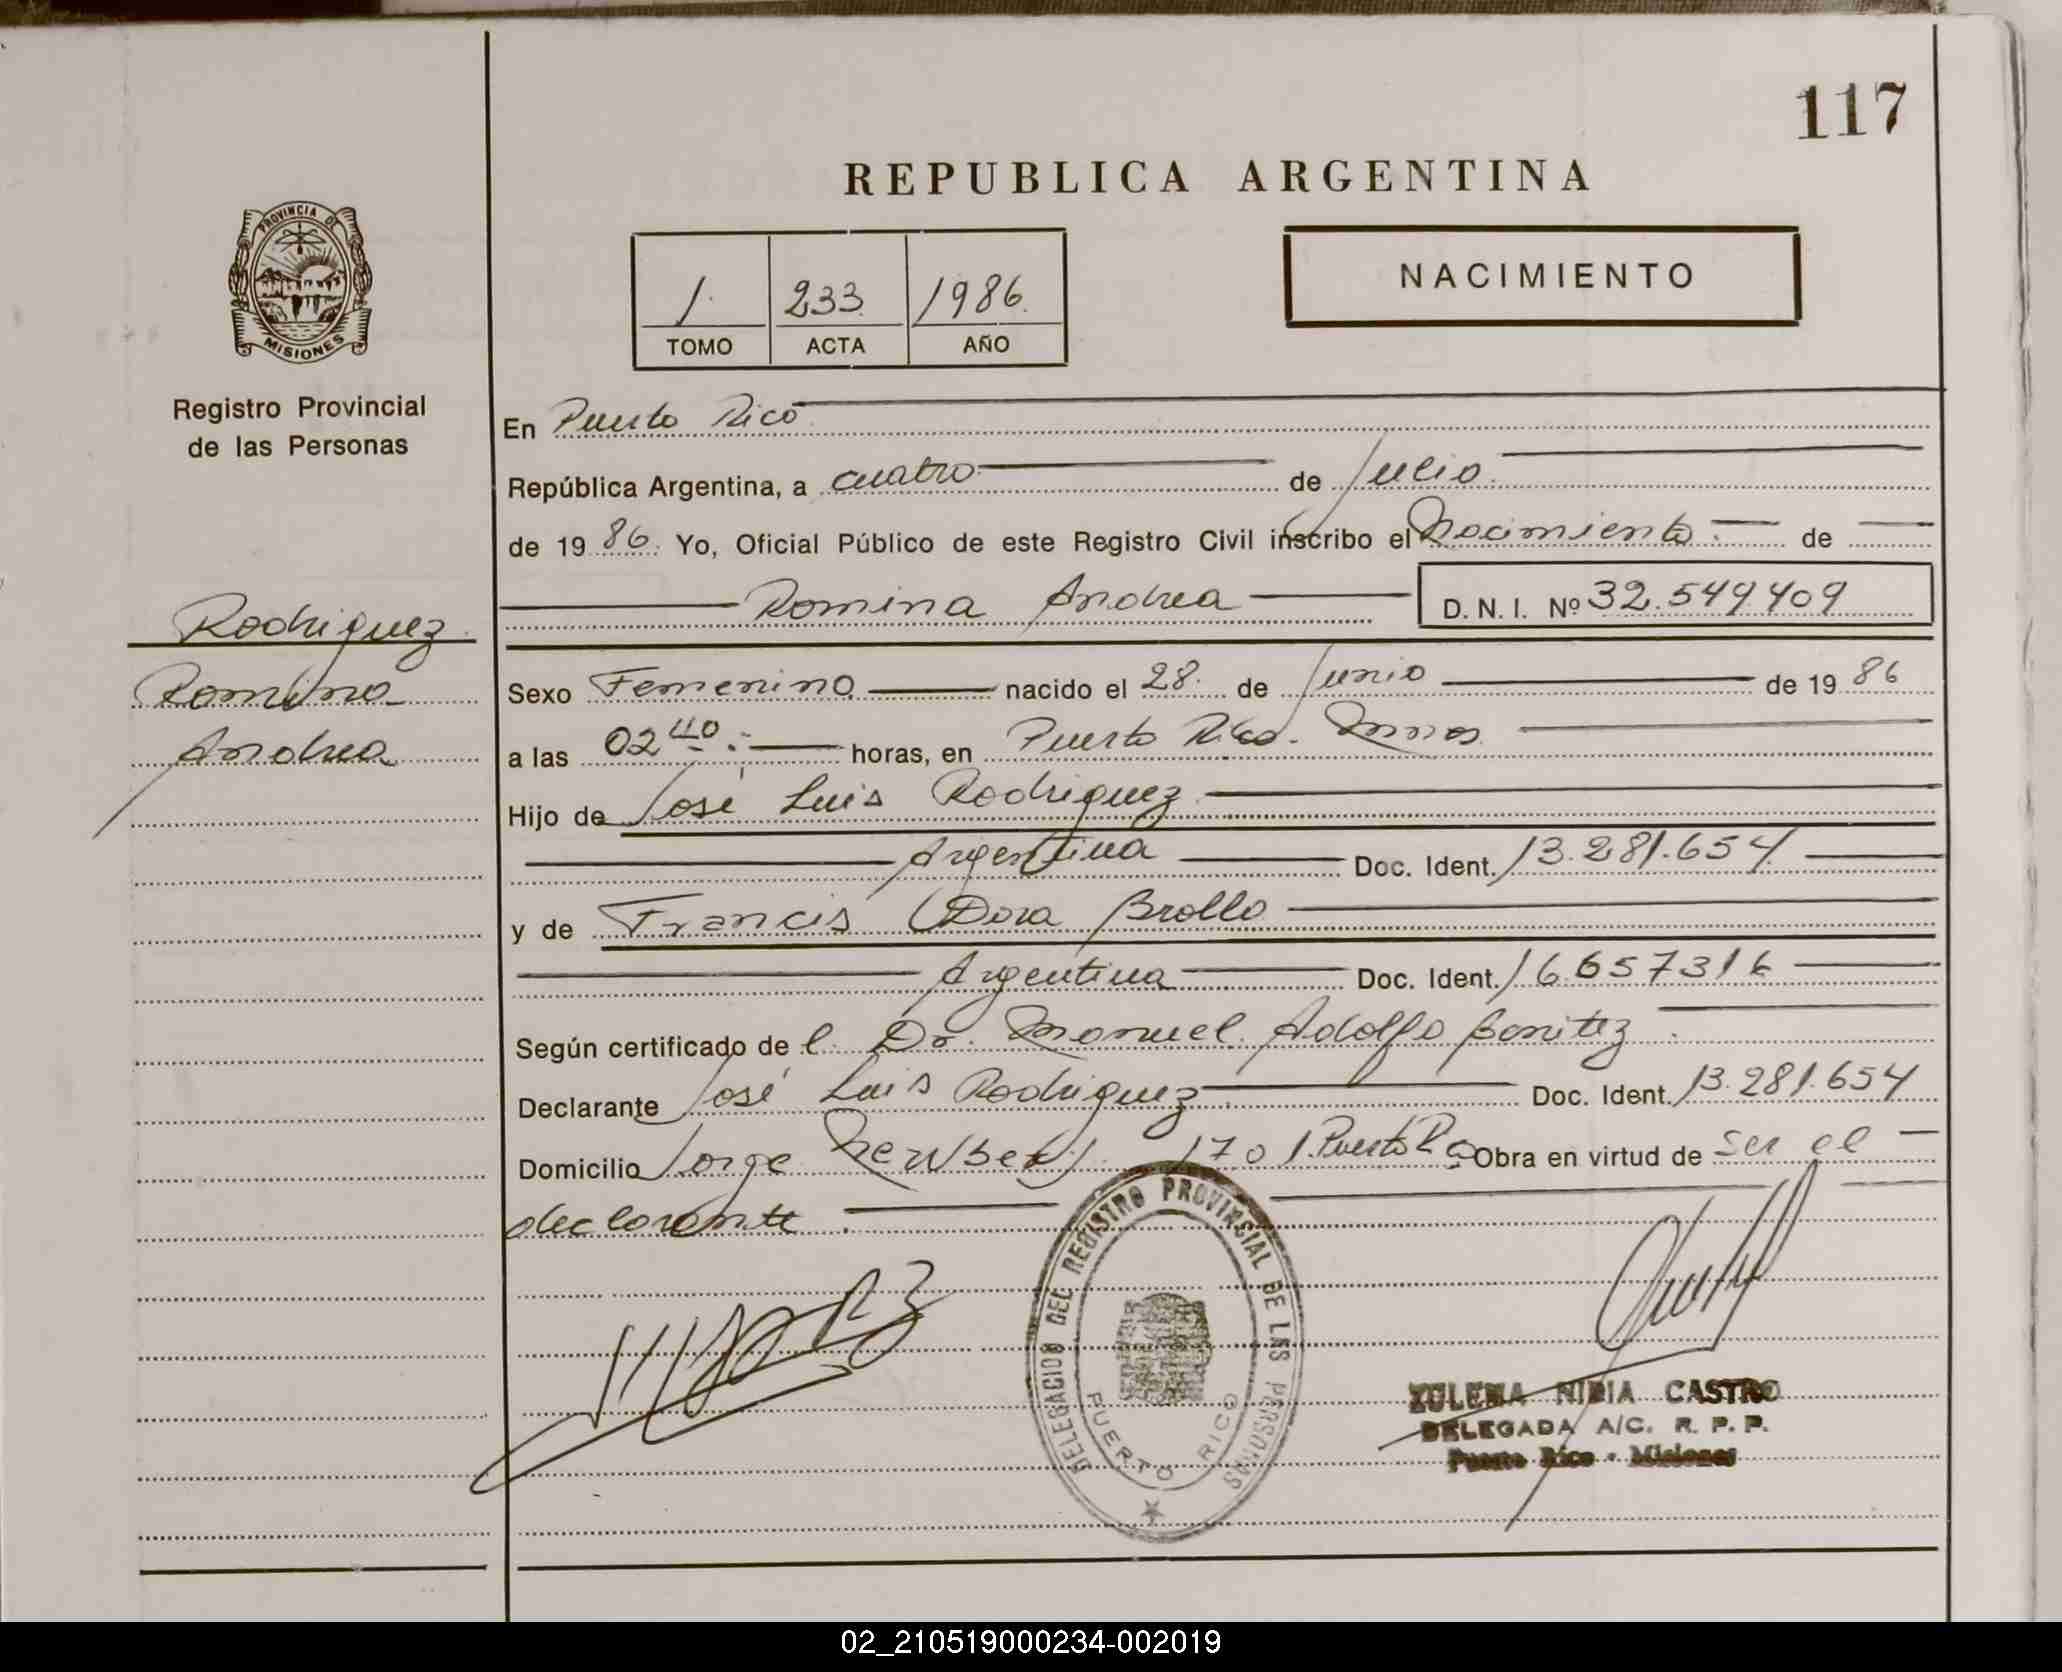 117
REPUBLICA ARGENTINA
PROVINCIA DE
MISIONES
Registro Provincial
de las Personas
1. 233. 1986.
TOMO ACTA AÑO
NACIMIENTO
En Puerto Rico
República Argentina, a cuatro de Julio
de 19 86. Yo, Oficial Público de este Registro Civil inscribo el Nacimiento de
Romina Andrea D. N. I. Nº 32.549.409
Rodriguez
Romina
Andrea
Sexo Femenino nacido el 28. de Junio de 19 86
a las 02 40 horas, en Puerto Rico. Mnes
Hijo de José Luis Rodriguez
Argentina Doc. Ident. 13.281.654
y de Francis Dora Brollo
Argentina Doc. Ident. 16657316
Según certificado de l Dr. Manuel Adolfo Benitez
Declarante José Luis Rodriguez Doc. Ident. 13.281.654
Domicilio Jorge Newbery 1701. Puerto Rico Obra en virtud de ser el
declarante
DELEGACION DEL REGISTRO PROVINCIAL DE LAS PERSONAS
PUERTO RICO
ZULEMA NIDIA CASTRO
DELEGADA A/C. R. P. P.
Puerto Rico - Misiones
02_210519000234-002019